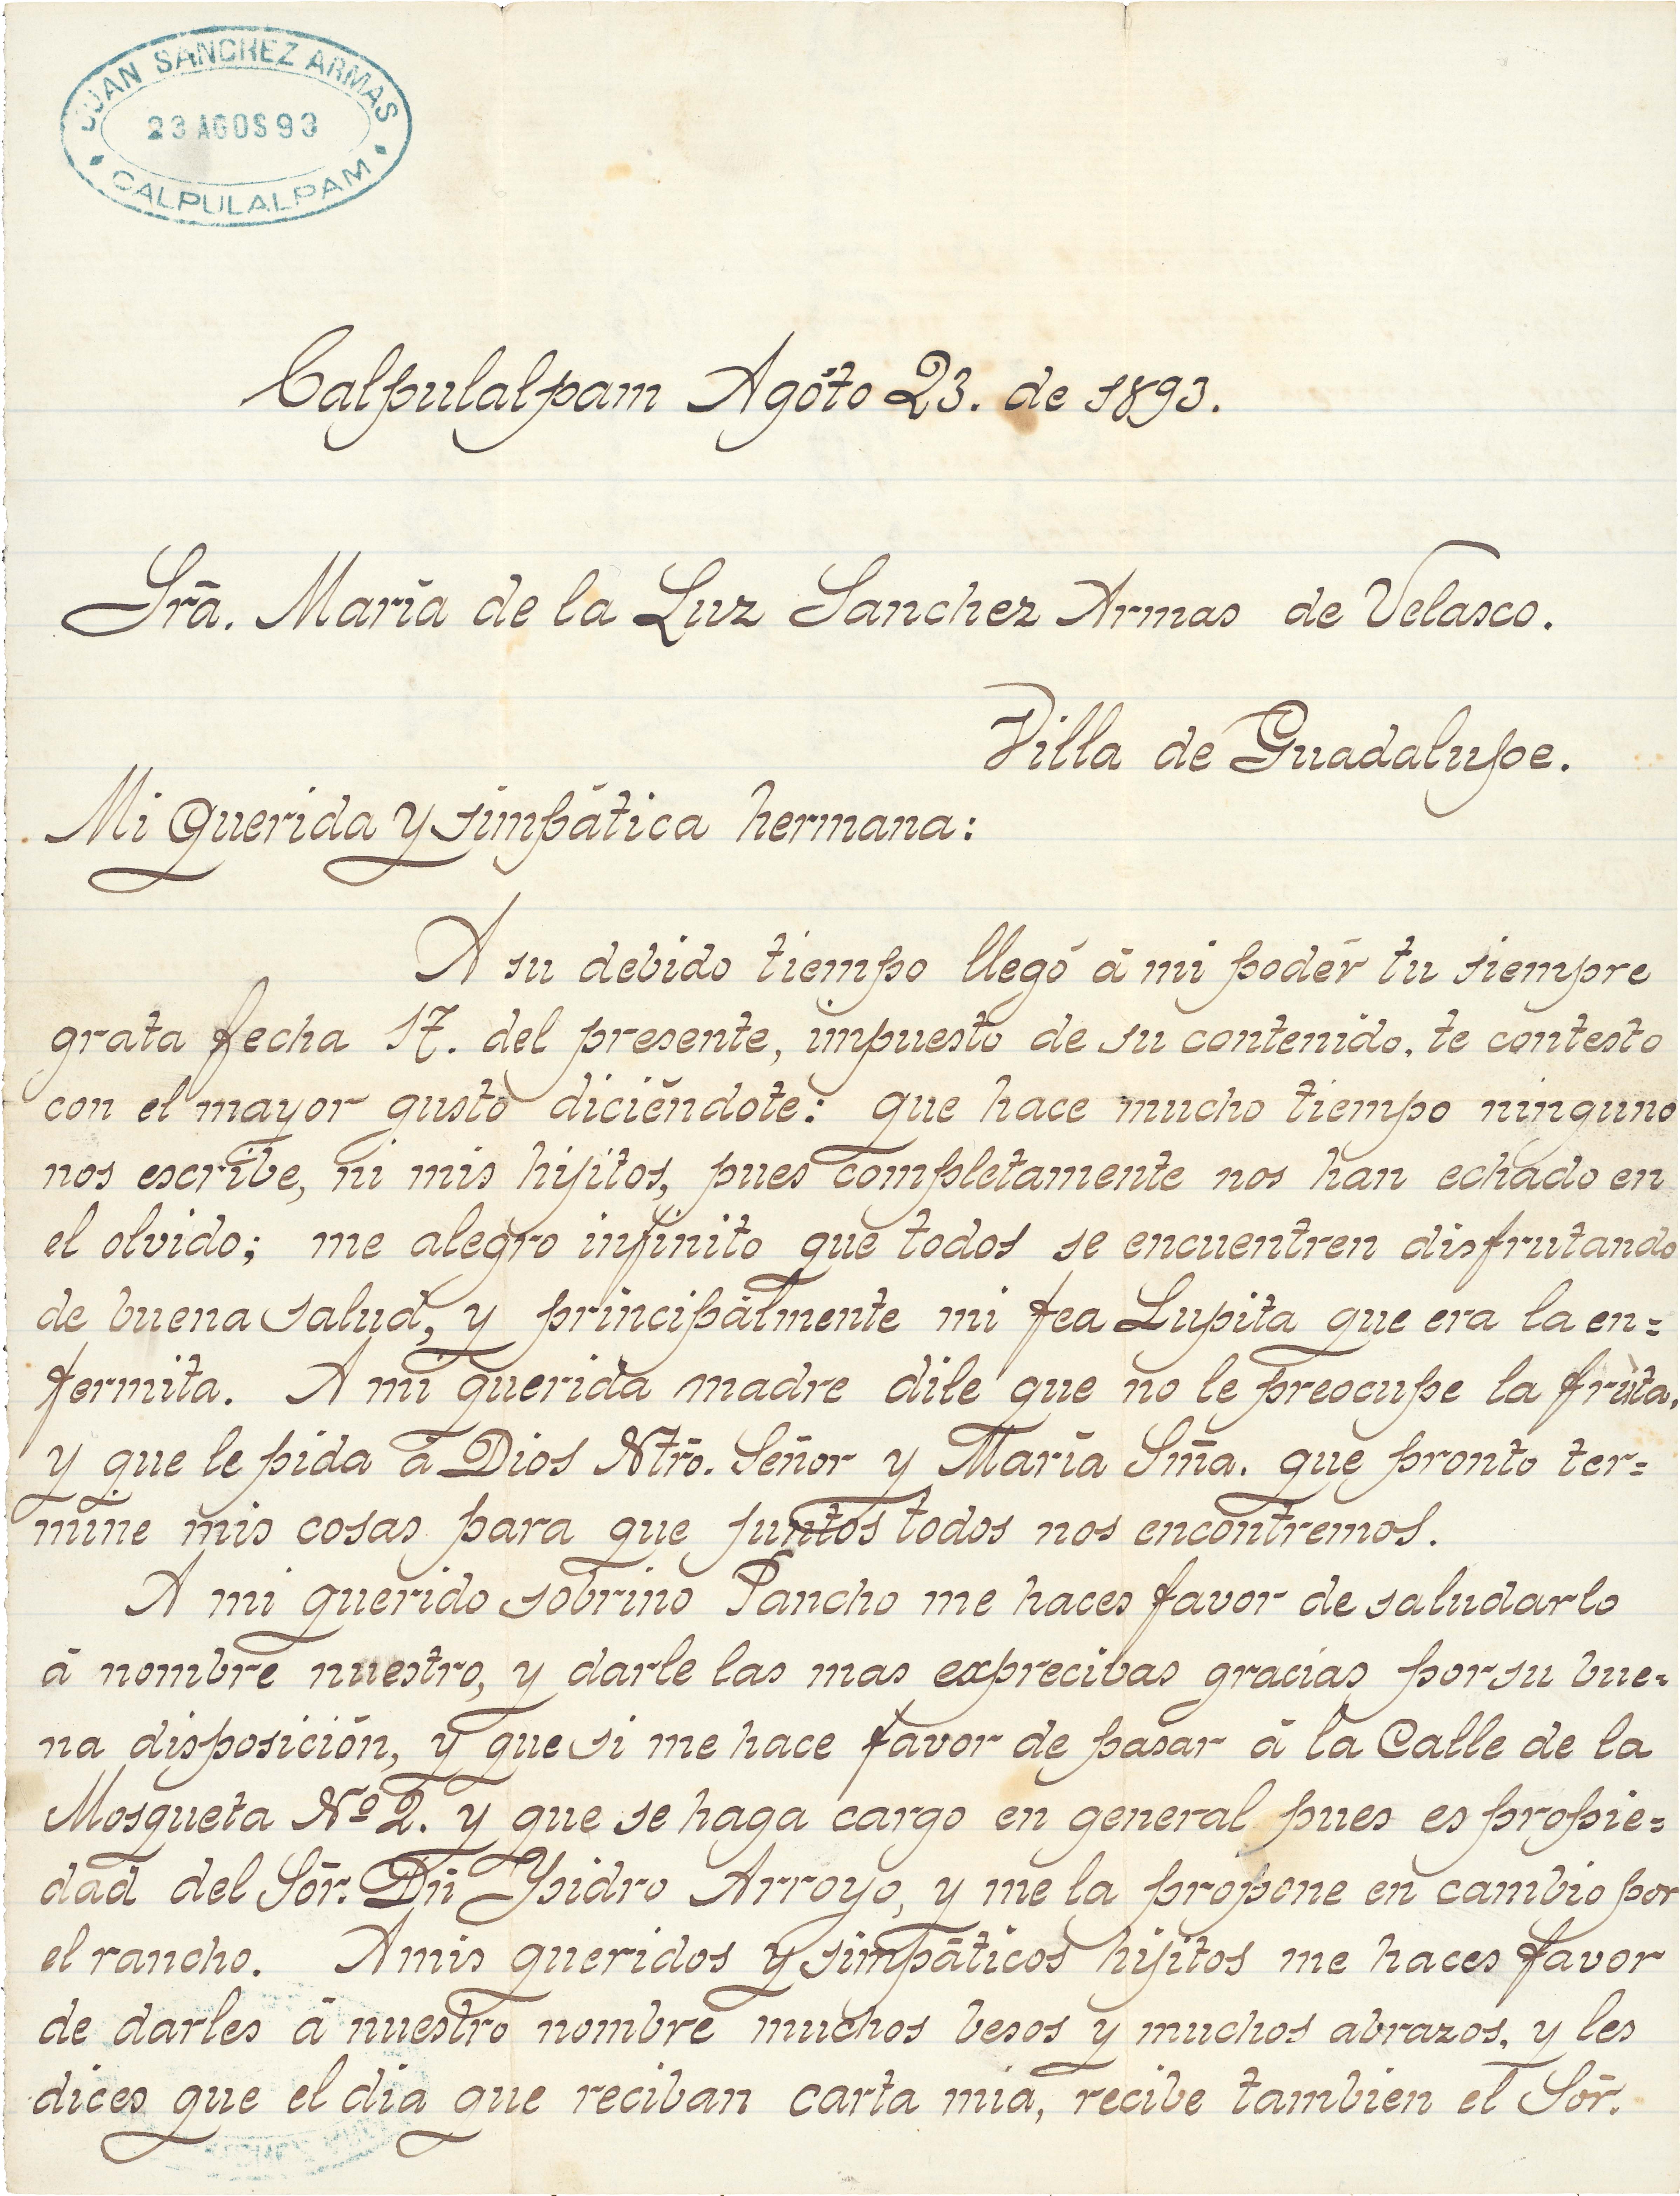 JUAN SANCHEZ ARMAS
23 AGOS 93
CALPULALPAM
Calpulalpam Agóto 23. de 1893.
Srā. María de la Luz Sanchez Armas de Velasco.
Villa de Guadalupe.
Mi querida y simpática hermana:
A su debido tiempo llegó á mi podér tu siempre
grata fecha 17. del presente, impuesto de su contenido, te contesto
con el mayor gusto diciéndote: que hace mucho tiempo ninguno
nos escribe, ni mis hijitos, pues completamente nos han echado en
el olvido; me alegro infinito que todos se encuentren disfrutando
de buena salud, y principalmente mi fea Lupita que era la en=
fermita. A mi querida madre dile que no le preocupe la fruta,
y que le pida á Dios Ntrō. Señor y María Sm̃a. que pronto ter=
mine mis cosas para que juntos todos nos encontremos.
A mi querido sobrino Pancho me haces favor de saludarlo
á nombre nuestro, y darle las mas exprecibas gracias por su bue=
na disposición, y que si me hace favor de pasar á la Calle de la
Mosqueta Nº 2. y que se haga cargo en general pues es propie=
dad del Sōr. Dn̄ Ysidro Arroyo, y me la propone en cambio por
el rancho. A mis queridos y simpáticos hijitos me haces favor
de darles á nuestro nombre muchos besos y muchos abrazos, y les
dices que el dia que reciban carta mia, recibe tambien el Sōr.